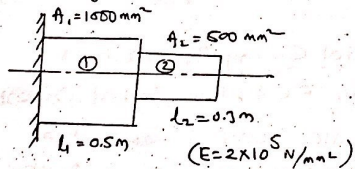 A₁ = 1000 mm²
A₂ = 500 mm²
① ②
l₂ = 0.3m
l₁ = 0.5m
(E = 2×10⁵ N/mm²)